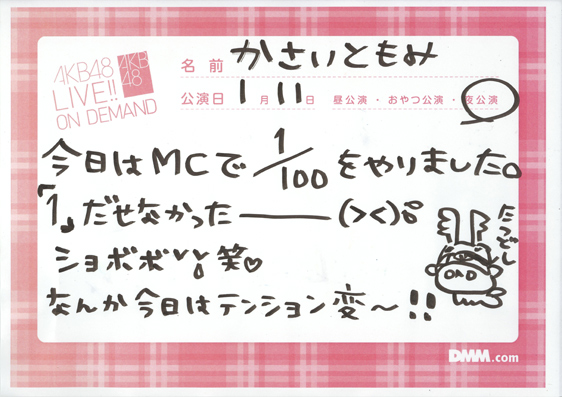 AKB48
LIVE!!
ON DEMAND
AKB
48
名前 かさいともみ
公演日 1月11日 昼公演・おやつ公演・夜公演
今日はMCで1/100をやりました。
「1」だせなかった――(><)。
ショボボ 笑♡
なんか今日はテンション変〜!!
たつどし
DMM.com